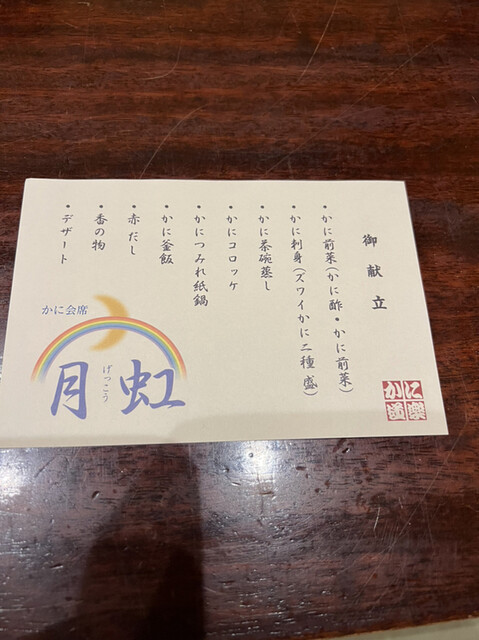 御献立
・かに前菜(かに酢・かに前菜)
・かに刺身(ズワイかに二種盛)
・かに茶碗蒸し
・かにコロッケ
・かにつみれ紙鍋
・かに釜飯
・赤だし
・香の物
・デザート
かに会席
月虹
げっこう
かに道楽